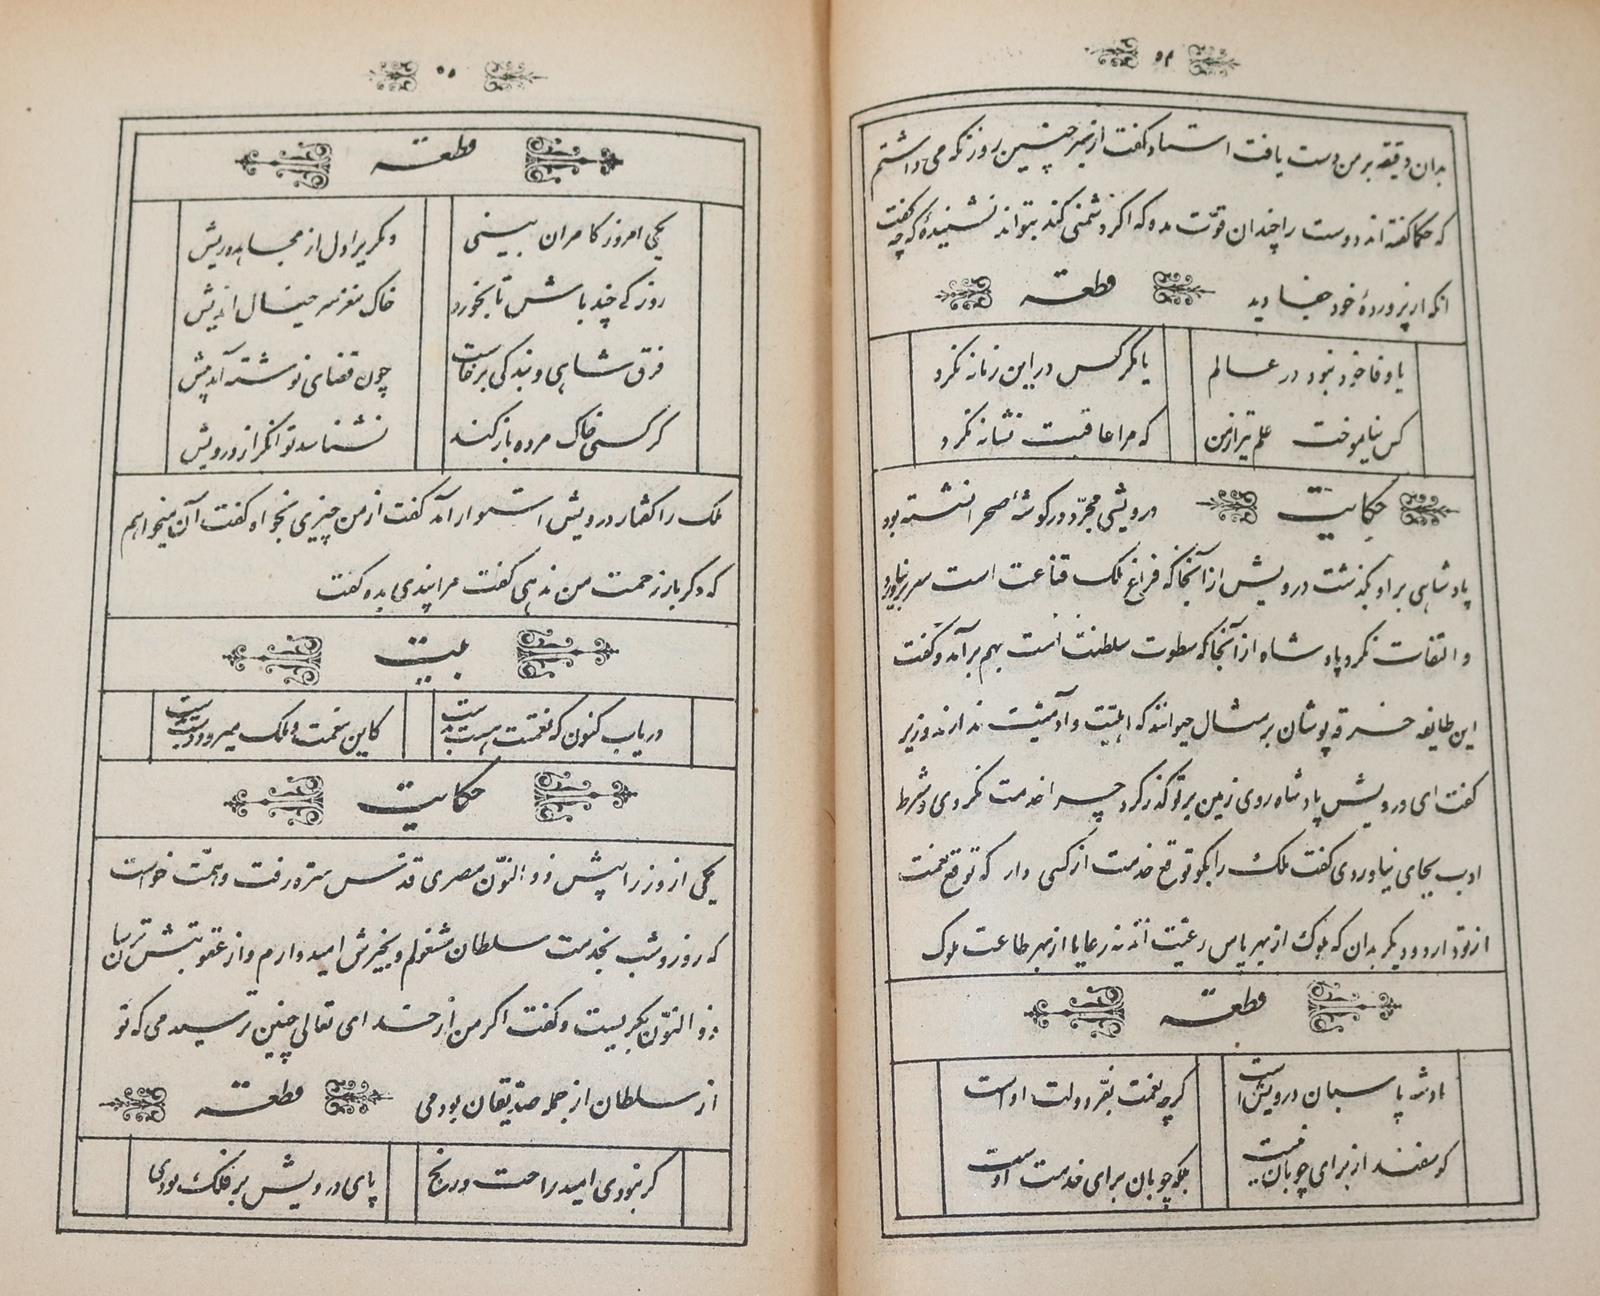 ۵۴
بدان دقیقه بر من دست یافت استاد گفت از بهر چنین روز نگه می داشتم
که حکما گفته اند دوست را چندان قوّت مده که اگر دشمنی کند بتواند نشنیدهٔ که چه گفت
آنکه از پروردهٔ خود جفا دید قطعه
یا وفا خود نبود در عالم یا مگر کس در این زمانه نکرد
کس نیاموخت علم تیر از من که مرا عاقبت نشانه نکرد
حکایت درویشی مجرّد در گوشهٔ صحرا نشسته بود
پادشاهی بر او بگذشت درویش از آنجا که فراغ ملک قناعت است سر برنیاورد
و التفات نکرد پادشاه از آنجا که سطوت سلطنت است بهم برآمد و گفت
این طایفه خرقه پوشان بر مثال حیوانند که اهلیّت و آدمیّت ندارند وزیر
گفت ای درویش پادشاه روی زمین بر تو گذر کرد چرا خدمت نکردی و شرط
ادب بجای نیاوردی گفت ملک را بگو توقع خدمت از کسی دار که توقع نعمت
از تو دارد و دیگر بدان که ملوک از بهر پاس رعیّت اند نه رعایا از بهر طاعت ملوک
قطعه
پادشه پاسبان درویش است گرچه نعمت بفرّ دولت اوست
گوسفند از برای چوپان نیست بلکه چوپان برای خدمت اوست
۵۵
قطعه
یکی امروز کامران بینی دگریرا دل از مجاهده ریش
روزکی چند باش تا بخورد خاک مغز سر خیال اندیش
فرق شاهی و بندگی برخاست چون قضای نوشته آمد پیش
گر کسی خاک مرده باز کند نشناسد توانگر از درویش
ملک را گفتار درویش استوار آمد گفت از من چیزی بخواه گفت آن میخواهم
که دگر بار زحمت من ندهی گفت مرا پندی بده گفت
بیت
دریاب کنون که نعمتت هست بدست کاین نعمت و ملک میرود دست بدست
حکایت
یکی از وزرا پیش ذوالنّون مصری قدّس سرّه رفت و همّت خواست
که روز و شب بخدمت سلطان مشغولم و بخیرش امیدوارم و از عقوبتش ترسان
ذوالنّون بگریست و گفت اگر من از خدای تعالی چنین ترسیدمی که تو
از سلطان از جمله صدّیقان بودمی قطعه
گر نبودی امید راحت و رنج پای درویش بر فلک بودی